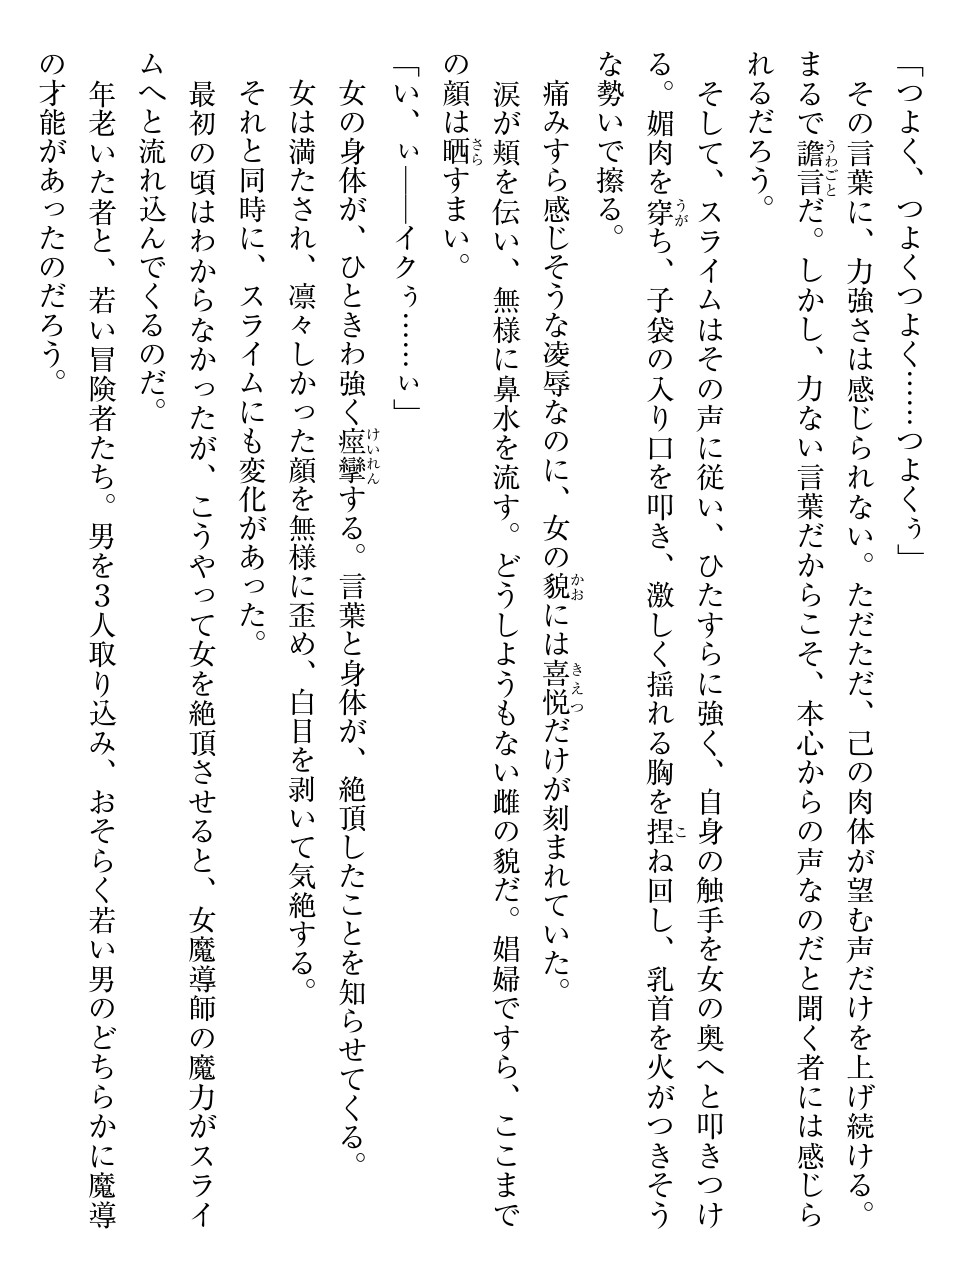 「つよく、つよくつよく……つよくぅ」
その言葉に、力強さは感じられない。ただただ、己の肉体が望む声だけを上げ続ける。
まるで譫言だ。しかし、力ない言葉だからこそ、本心からの声なのだと聞く者には感じら
れるだろう。
そして、スライムはその声に従い、ひたすらに強く、自身の触手を女の奥へと叩きつけ
る。媚肉を穿ち、子袋の入り口を叩き、激しく揺れる胸を捏ね回し、乳首を火がつきそう
な勢いで擦る。
痛みすら感じそうな凌辱なのに、女の貌には喜悦だけが刻まれていた。
涙が頬を伝い、無様に鼻水を流す。どうしようもない雌の貌だ。娼婦ですら、ここまで
の顔は晒すまい。
「い、ぃ――イクぅ……ぃ」
女の身体が、ひときわ強く痙攣する。言葉と身体が、絶頂したことを知らせてくる。
女は満たされ、凛々しかった顔を無様に歪め、白目を剥いて気絶する。
それと同時に、スライムにも変化があった。
最初の頃はわからなかったが、こうやって女を絶頂させると、女魔導師の魔力がスライ
ムへと流れ込んでくるのだ。
年老いた者と、若い冒険者たち。男を3人取り込み、おそらく若い男のどちらかに魔導
の才能があったのだろう。